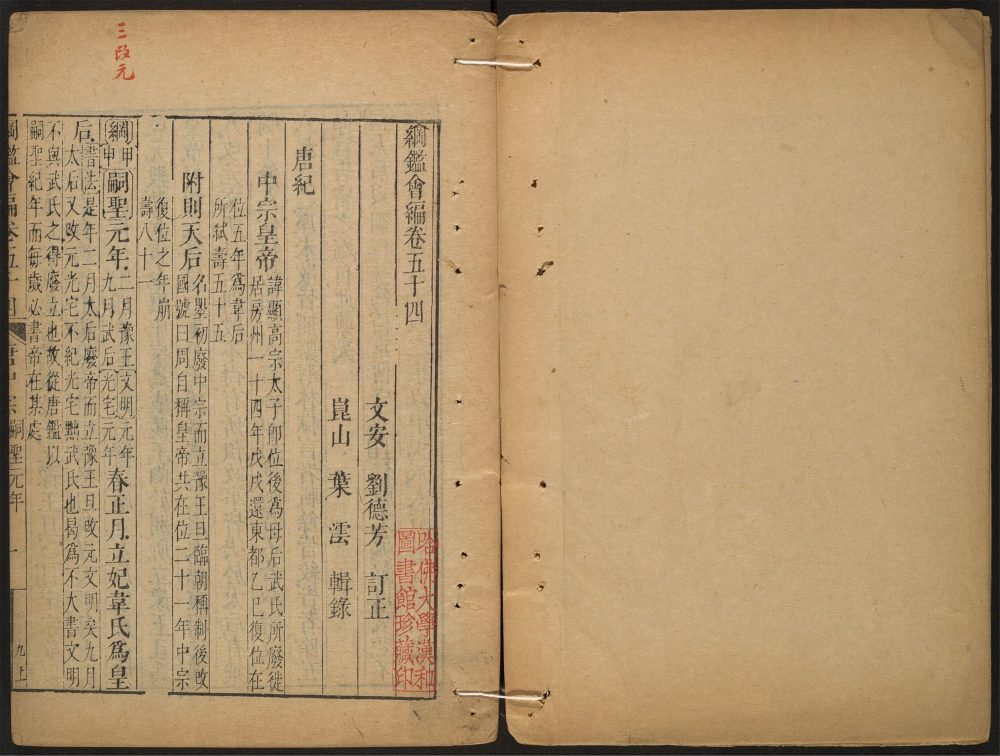 綱鑑會編卷五十四
文安 劉德芳 訂正
崑山 葉澐 輯錄
唐紀
中宗皇帝 諱顯高宗太子卽位後爲母后武氏所廢徙
居房州一十四年戊戌還東都乙巳復位在
位五年爲韋后
所弒壽五十五
附則天后 名曌初廢中宗而立豫王旦臨朝稱制後改
國號曰周自稱皇帝共在位二十一年中宗
復位之年崩
壽八十一
綱 甲申 嗣聖元年 二月豫王文明元年
九月武后光宅元年 春正月立妃韋氏爲皇
后 書法是年二月太后廢帝而立豫王旦改元文明矣九月
太后又改元光宅不紀光宅黜武氏也曷爲不大書文明
不與武氏之得廢立也故從唐鑑以
嗣聖紀年而每歲必書帝在某處
綱鑑會編卷五十四 唐中宗 嗣聖元年 一 九上
三改元
哈佛大學漢和
圖書館珍藏印